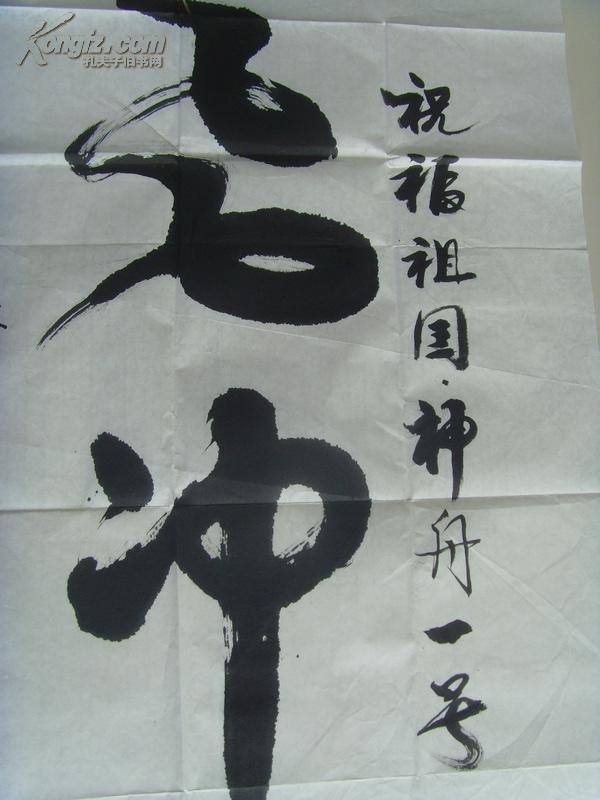 Kongfz.com
孔夫子旧书网
祝福祖国·神舟一号
冲